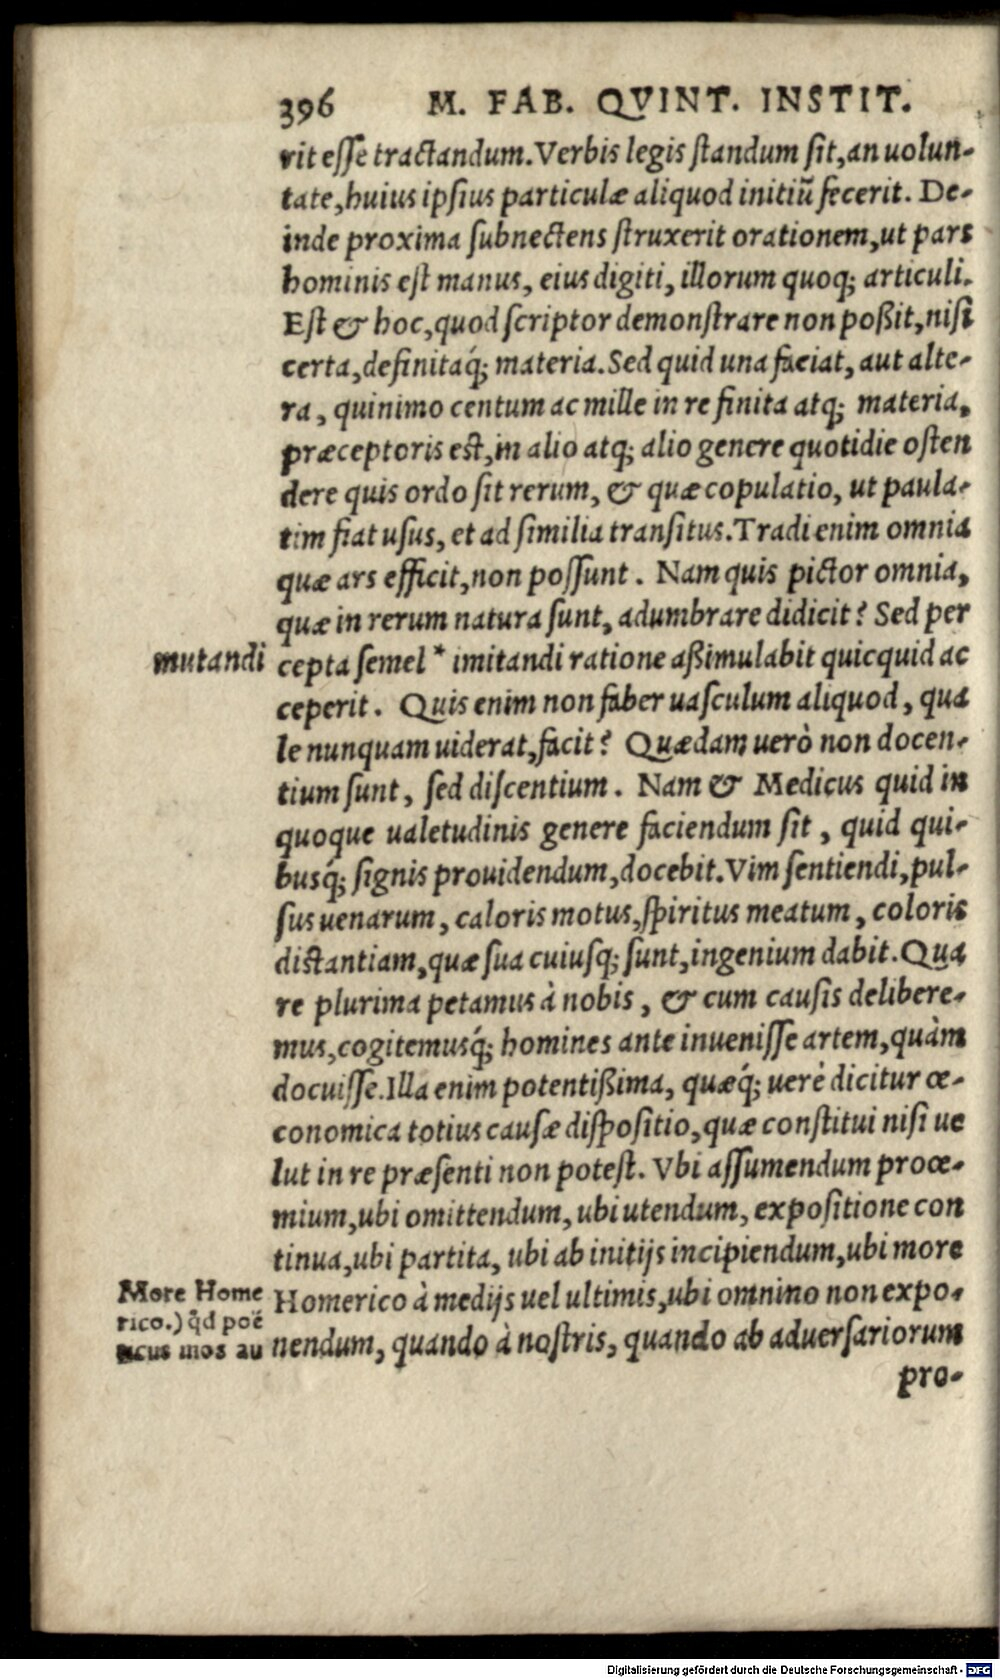 396 M. FAB. QVINT. INSTIT.
rit esse tractandum. Verbis legis standum sit, an uolun-
tate, huius ipsius particulæ aliquod initiũ fecerit. De-
inde proxima subnectens struxerit orationem, ut pars
hominis est manus, eius digiti, illorum quoq; articuli.
Est & hoc, quod scriptor demonstrare non poßit, nisi
certa, definitaq́; materia. Sed quid una faciat, aut alte-
ra, quinimo centum ac mille in re finita atq; materia,
præceptoris est, in alio atq; alio genere quotidie osten
dere quis ordo sit rerum, & quæ copulatio, ut paula-
tim fiat usus, et ad similia transitus. Tradi enim omnia
quæ ars efficit, non possunt. Nam quis pictor omnia,
quæ in rerum natura sunt, adumbrare didicit? Sed per
mutandi
cepta semel * imitandi ratione aßimulabit quicquid ac
ceperit. Quis enim non faber uasculum aliquod, qua
le nunquam uiderat, facit? Quædam uerò non docen-
tium sunt, sed discentium. Nam & Medicus quid in
quoque ualetudinis genere faciendum sit, quid qui-
busq́; signis prouidendum, docebit. Vim sentiendi, pul-
sus uenarum, caloris motus, spiritus meatum, coloris
distantiam, quæ sua cuiusq; sunt, ingenium dabit. Qua
re plurima petamus à nobis, & cum causis delibere-
mus, cogitemusq́; homines ante inuenisse artem, quàm
docuisse. Illa enim potentißima, quæq́; uerè dicitur œ-
conomica totius causæ dispositio, quæ constitui nisi ue
lut in re præsenti non potest. Vbi assumendum proœ-
mium, ubi omittendum, ubi utendum, expositione con
tinua, ubi partita, ubi ab initijs incipiendum, ubi more
More Home
Homerico à medijs uel ultimis, ubi omnino non expo-
rico.) q̊d poë
nendum, quando à nostris, quando ab aduersariorum
ticus mos au
pro-
Digitalisierung gefördert durch die Deutsche Forschungsgemeinschaft - DFG